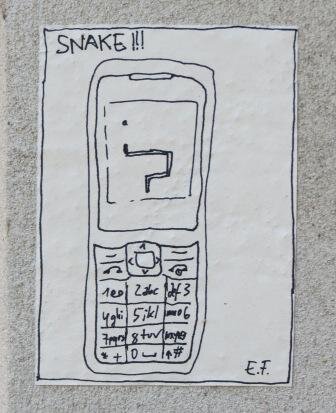 SNAKE!!!
1 2abc 3
4ghi 5jkl mno6
7pqrs 8tuv wxyz9
* + 0 ⌴ ↑#
E.F.